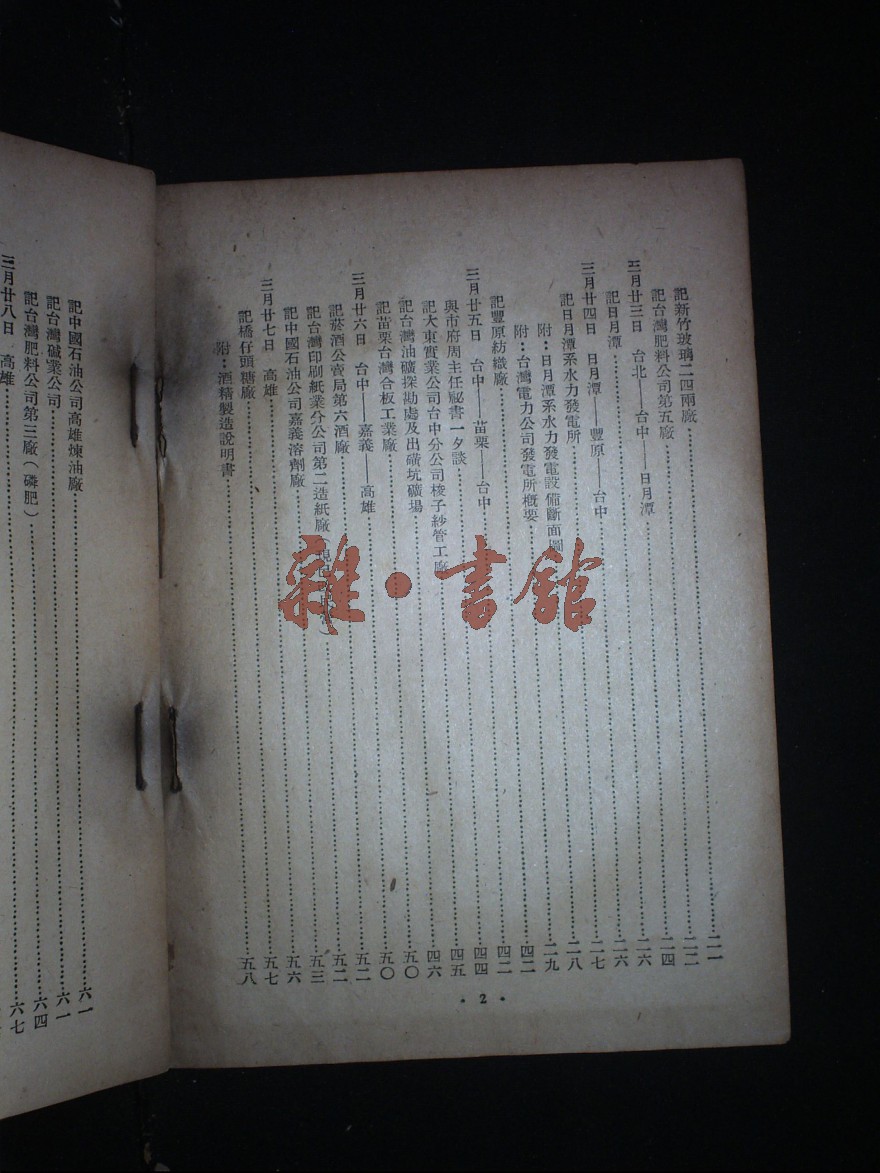 記新竹玻璃二四兩廠……二一
記台灣肥料公司第五廠……二二
三月廿三日　台北——台中——日月潭……二四
記日月潭……二六
三月廿四日　日月潭——豐原——台中……二六
記日月潭系水力發電所……二七
附：日月潭系水力發電設備斷面圖……二八
附：台灣電力公司發電所概要……二九
記豐原紡織廠……四二
三月廿五日　台中——苗栗——台中……四二
與市府周主任秘書一夕談……四四
記大東實業公司台中分公司梭子紗管工廠……四五
記台灣油礦探勘處及出磺坑礦場……四六
記苗栗台灣合板工業廠……五〇
三月廿六日　台中——嘉義——高雄……五〇
記菸酒公賣局第六酒廠……五二
記台灣印刷紙業分公司第二造紙廠……五二
記中國石油公司嘉義溶劑廠……五三
三月廿七日　高雄……五六
記橋仔頭糖廠……五七
附：酒精製造說明書……五八
·2·
記中國石油公司高雄煉油廠……六一
記台灣碱業公司……六一
記台灣肥料公司第三廠（磷肥）……六四
三月廿八日　高雄……六七
雜·書館